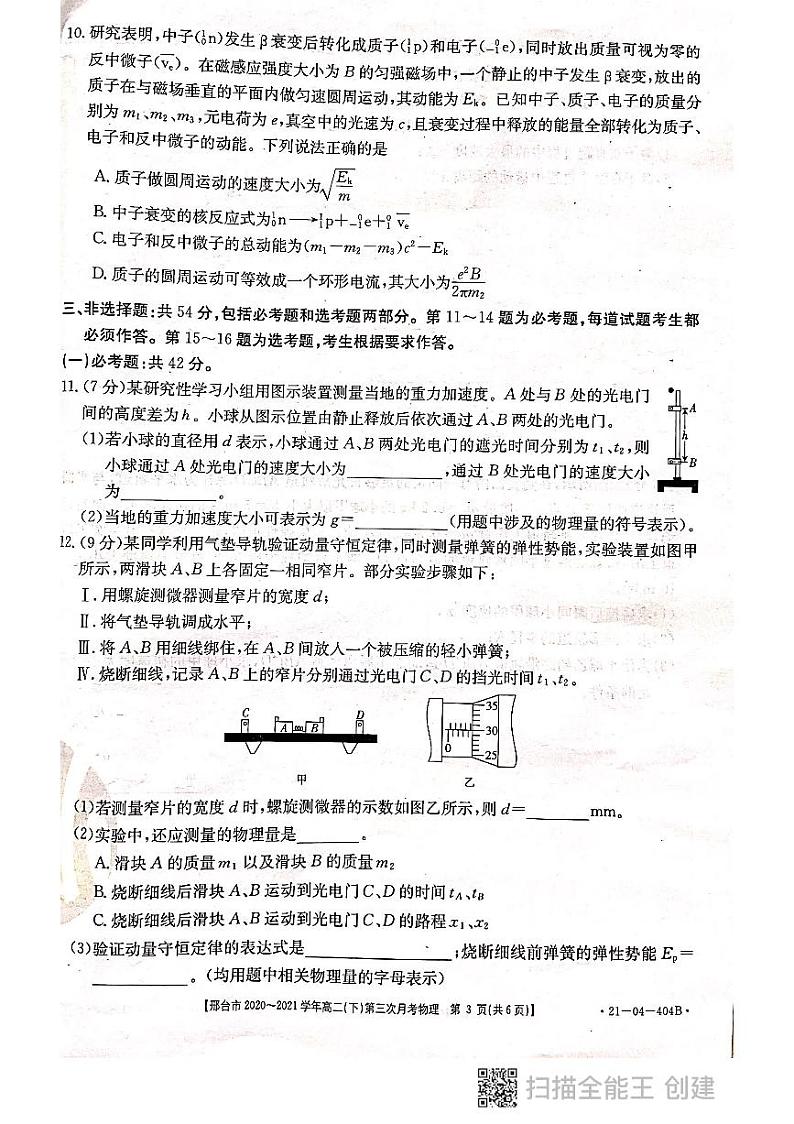 10. 研究表明,中子(¹₀n)发生β衰变后转化成质子(¹₁p)和电子(⁰₋₁e),同时放出质量可视为零的
反中微子(ν̄ₑ)。在磁感应强度大小为B的匀强磁场中,一个静止的中子发生β衰变,放出的
质子在与磁场垂直的平面内做匀速圆周运动,其动能为Eₖ。已知中子、质子、电子的质量分
别为m₁、m₂、m₃,元电荷为e,真空中的光速为c,且衰变过程中释放的能量全部转化为质子、
电子和反中微子的动能。下列说法正确的是
A. 质子做圆周运动的速度大小为√(Eₖ/m)
B. 中子衰变的核反应式为¹₀n⟶¹₁p+⁰₋₁e+⁰₁ν̄ₑ
C. 电子和反中微子的总动能为(m₁-m₂-m₃)c²-Eₖ
D. 质子的圆周运动可等效成一个环形电流,其大小为e²B/2πm₂
三、非选择题:共54分,包括必考题和选考题两部分。第11~14题为必考题,每道试题考生都
必须作答。第15~16题为选考题,考生根据要求作答。
(一)必考题:共42分。
11. (7分)某研究性学习小组用图示装置测量当地的重力加速度。A处与B处的光电门
间的高度差为h。小球从图示位置由静止释放后依次通过A、B两处的光电门。
(1)若小球的直径用d表示,小球通过A、B两处光电门的遮光时间分别为t₁、t₂,则
小球通过A处光电门的速度大小为__________,通过B处光电门的速度大小
为__________。
A
h
B
(2)当地的重力加速度大小可表示为g=__________(用题中涉及的物理量的符号表示)。
12. (9分)某同学利用气垫导轨验证动量守恒定律,同时测量弹簧的弹性势能,实验装置如图甲
所示,两滑块A、B上各固定一相同窄片。部分实验步骤如下:
Ⅰ. 用螺旋测微器测量窄片的宽度d;
Ⅱ. 将气垫导轨调成水平;
Ⅲ. 将A、B用细线绑住,在A、B间放入一个被压缩的轻小弹簧;
Ⅳ. 烧断细线,记录A、B上的窄片分别通过光电门C、D的挡光时间t₁、t₂。
C A B D
甲
0 35 30 25
乙
(1)若测量窄片的宽度d时,螺旋测微器的示数如图乙所示,则d=_______mm。
(2)实验中,还应测量的物理量是_______。
A. 滑块A的质量m₁以及滑块B的质量m₂
B. 烧断细线后滑块A、B运动到光电门C、D的时间t_A、t_B
C. 烧断细线后滑块A、B运动到光电门C、D的路程x₁、x₂
(3)验证动量守恒定律的表达式是_______________;烧断细线前弹簧的弹性势能Eₚ=
__________。(均用题中相关物理量的字母表示)
【邢台市2020~2021学年高二(下)第三次月考物理 第3页(共6页)】 ·21-04-404B·
扫描全能王 创建